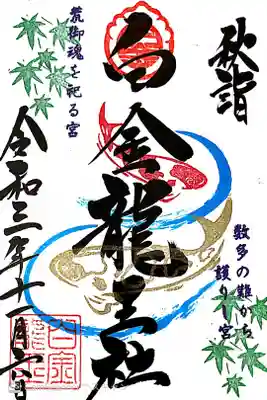 秋詣
数多の難から
護りし宮
白金龍王社
荒御魂を祀る宮
令和三年十一月六日